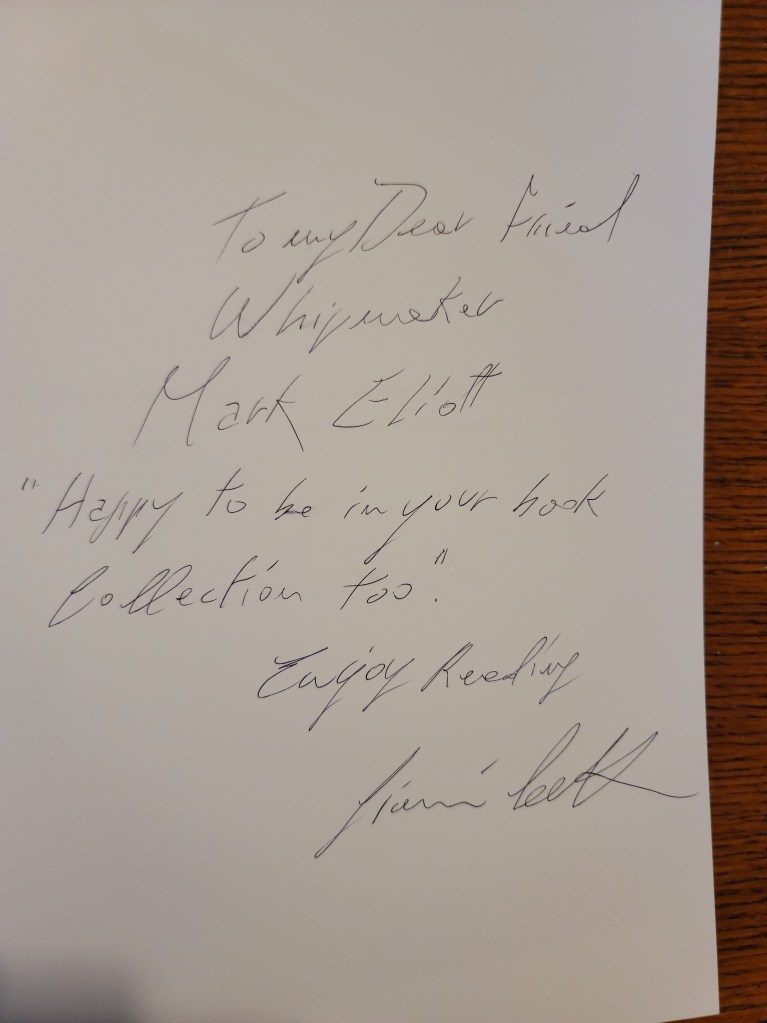 To my Dear Friend
Whipmaker
Mark Eliott
"Happy to be in your book
Collection too".
Enjoy Reading